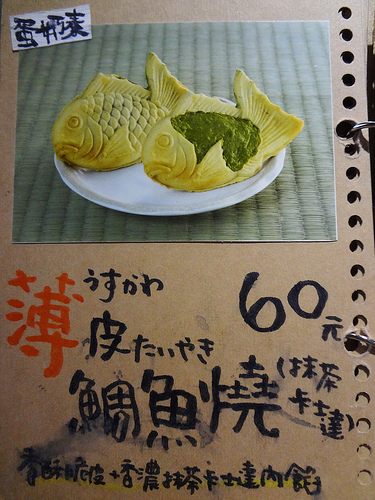 蛋奶素
うすかわ
薄皮たいやき
鯛魚燒
(抹茶卡士達)
60元
香酥脆皮+香濃抹茶卡士達內餡